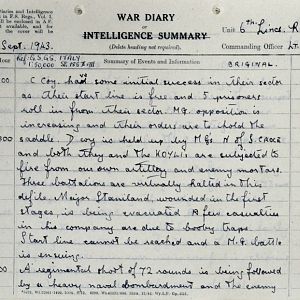 WAR DIARY
or
INTELLIGENCE SUMMARY
(Delete heading not required).
Unit 6th Lincs. R
Commanding Officer Lt.
diaries and Intelligence
in F.S. Regs., Vol. I.
Sept. 1943.
Ref: G.S.G.S. ITALY
1:50,000
Summary of Events and Information
ORIGINAL.
C Coy. had some initial success in their sector
as their start line is free and 5 prisoners
roll in from their sector. M.G. opposition is
increasing and their orders are to hold the
saddle. D Coy is held up by MGs N of S. CROCE
and both they and the KOYLIs are subjected to
fire from our own artillery and enemy mortars.
Three battalions are virtually halted in this
defile. Major Stamland, wounded in the first
stages, is being evacuated. A few casualties
in his company are due to booby traps.
Start line cannot be reached and a M.G. battle
is ensuing.
A regimental shoot of 72 rounds is being followed
by a heavy naval bombardment and the enemy